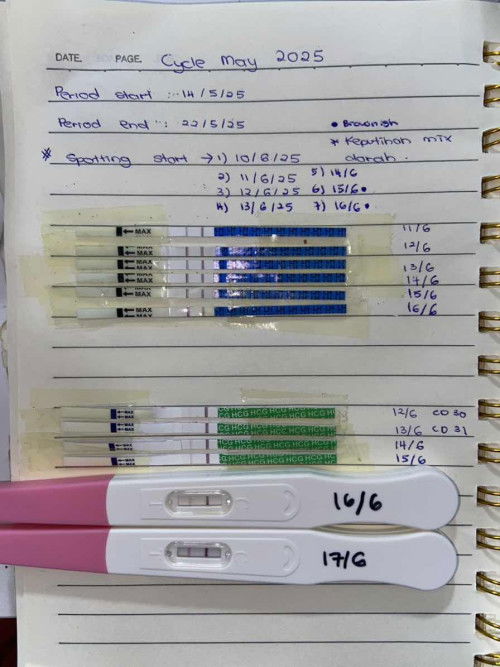 DATE. PAGE. Cycle May 2025
Period start :- 14/5/25
Period end : 22/5/25
• Brownish
* Keputihan mix darah.
* Spotting start → 1) 10/6/25
2) 11/6/25
3) 12/6/25
4) 13/6/25
5) 14/6
6) 15/6 •
7) 16/6 •
MAX 11/6
MAX 12/6
MAX 13/6
MAX 14/6
MAX 15/6
MAX 16/6
MAX HCG HCG HCG HCG HCG H 12/6 CD 30
MAX HCG HCG HCG HCG HCG 13/6 CD 31
MAX HCG HCG HCG HCG HCG 14/6
MAX HCG HCG HCG HCG HCG 15/6
16/6
17/6